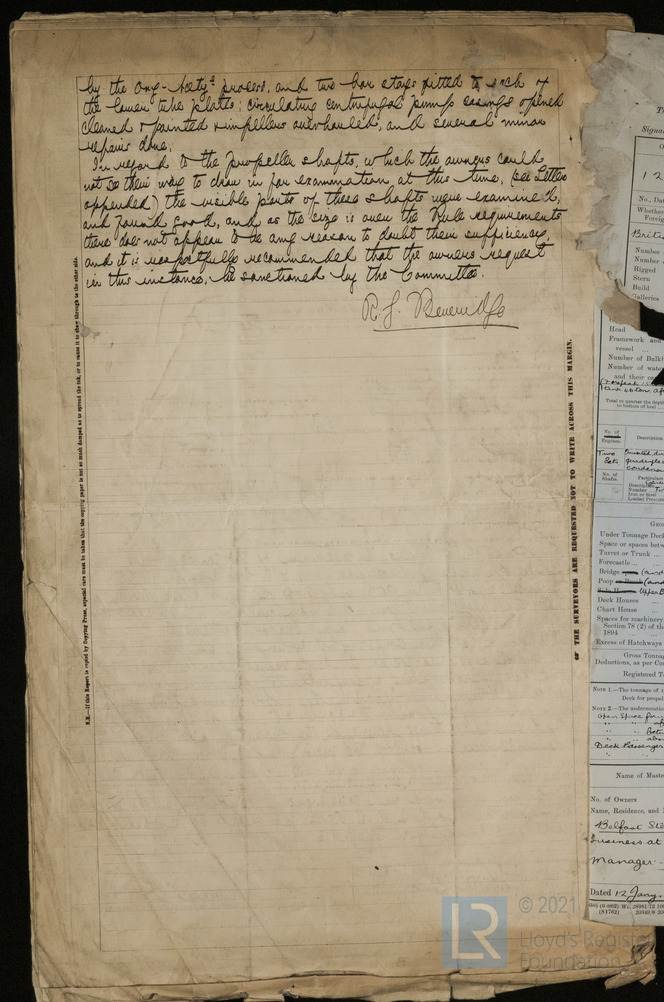 by the Oxy-Acety^e process, and two bar stays fitted to each of
the lower tube plates; circulating centrifugal pumps casings opened
cleaned & painted & impellers overhauled, and several minor
repairs done.
In regard to the propeller shafts, which the owners could
not see their way to draw in for examination at this time, (see Letter
appended) the visible parts of these shafts were examined,
and found good, and as the size is over the Rule requirements
there does not appear to be any reason to doubt their sufficiency,
and it is respectfully recommended that the owners request
in this instance, be sanctioned by the Committee.
R. J. Beveridge
N.B.—If this Report is copied by Copying Press, especial care must be taken that the copying paper is not so much damped as to spread the ink, or to cause it to show through to the other side.
THE SURVEYORS ARE REQUESTED NOT TO WRITE ACROSS THIS MARGIN.
Signa
1 2
No., Dat
Whethe
Foreig
Britis
Number
Number
Rigged
Stern
Build
Galleries
Head
Framework and
vessel ...
Number of Bulkh
Number of wate
and their ca
Total to quarter the depth
to bottom of keel
No. of
Engines.
Description
Two
Sets
No. of
Shafts.
Particulars
Description
Number
Iron or Steel
Loaded Pressure
Gro
Under Tonnage Deck
Space or spaces betw
Turret or Trunk ...
Forecastle ...
Bridge
Poop
Upper B
Deck Houses
Chart House
Spaces for machinery
Section 78 (2) of the
1894
Excess of Hatchways
Gross Tonnag
Deductions, as per Co
Registered To
NOTE 1.—The tonnage of
Deck for propel
NOTE 2.—The undermentione
Open Space
Deck Passenger
Name of Maste
No. of Owners
Name, Residence, and
Belfast Ste
business at
Manager -
Dated 12 Jany.
(81762)
LR
© 2021
Lloyd's Register
Foundation